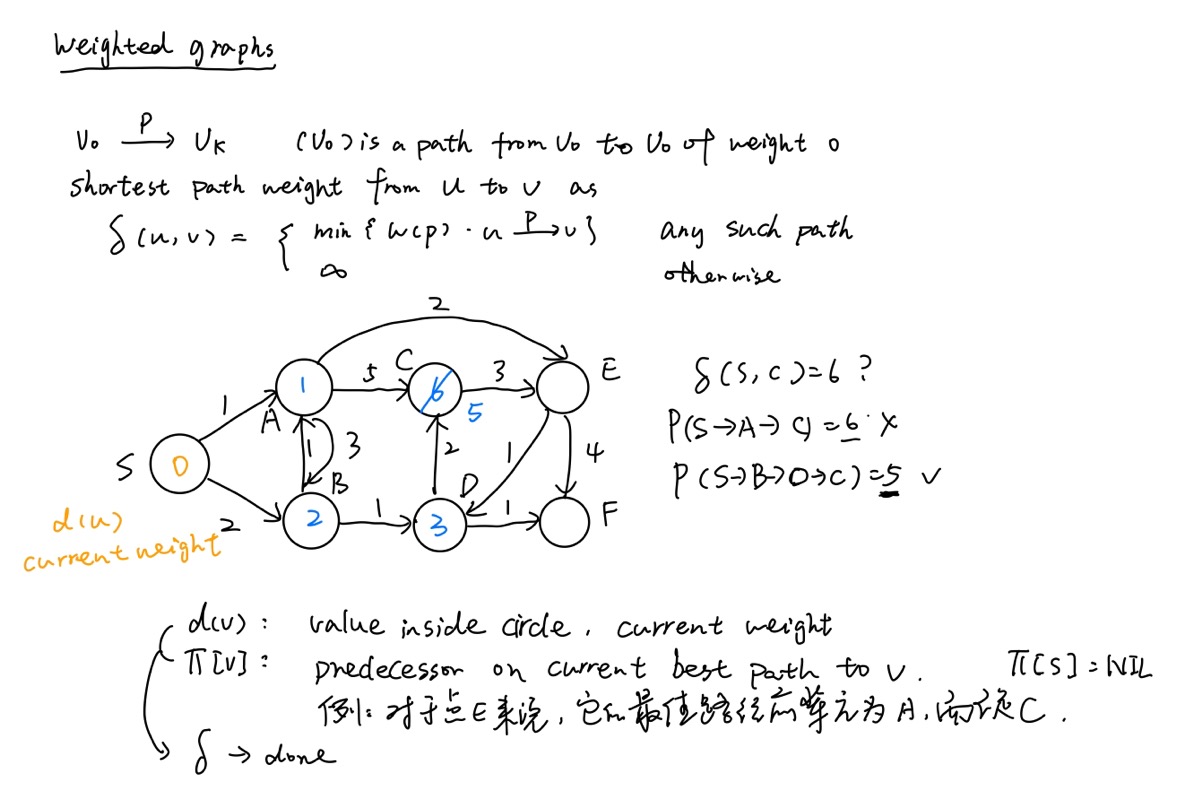 Weighted graphs
V₀ →P Vₖ (V₀) is a path from V₀ to V₀ of weight 0
shortest path weight from u to v as
δ(u,v) = { min { w(p) · u →P v } any such path
∞ otherwise
2
C 5 3 E
1 6 5
1 A 3 1 2 1 4
S 0
B D
2 2 1 3 1 F
δ(S,C)=6 ?
P(S→A→C)=6 ×
P(S→B→D→C)=5 √
d(u)
current weight
d(v): value inside circle, current weight
π[v]: predecessor on current best path to v. π[S]=NIL
例:对于点E来说,它的最佳路径前単元为A,而不是C.
δ → done